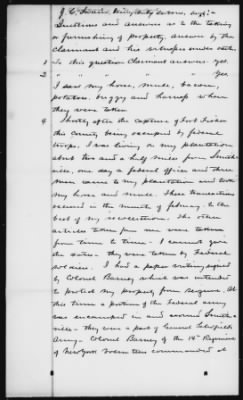 J. C. Swain, being duly sworn, says:
Questions and answers as to the taking
or furnishing of property answer by the
claimant and his witnesses under oath.
1 To this question Claimant answers. yes.
2 " " " " " " Yes
3 I saw my horse, mule, bacon,
potatoes, buggy and harness when
they were taken
4 Shortly after the capture of Fort Fisher
this county being occupied by federal
troops. I was living on my plantation
about two and a half miles from Smith-
ville, one day a federal officer and three
men came to my plantation and took
my horse and mule. These transactions
occured in the month of february, to the
best of my recollection. The other
articles taken from me were taken
from time to time - I cannot give
the dates - they were taken by Federal
soldiers. I had a paper writing signed
by Colonel Barney which was intended
to protect my property from seizure. At
this time a portion of the Federal army
was encamped in and around Smith-
ville - they were a part of General Schofields
Army - Colonel Barney of the Regiment
of New York Volunteers commanded at